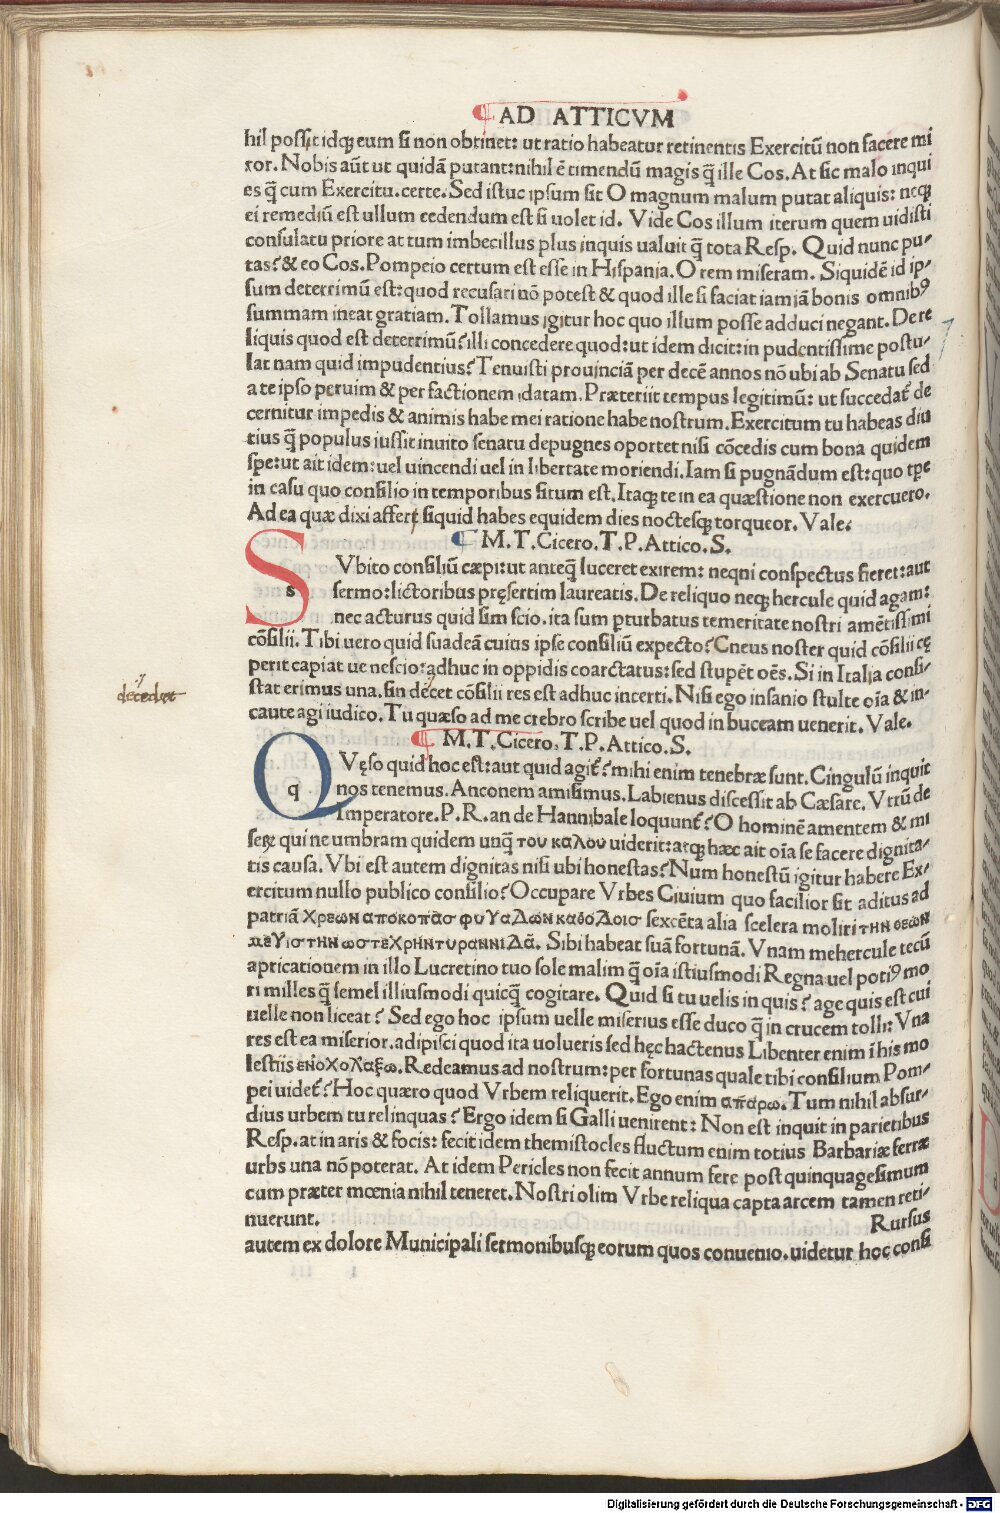 AD ATTICVM
hil possit idqꝫ eum si non obtinet: ut ratio habeatur retinentis Exercitū non facere mi
ror. Nobis aūt ut quidā putant: nihil ē timendū magis q̄ ille Cos. At sic malo inqui
es q̄ cum Exercitu. certe. Sed istuc ipsum sit O magnum malum putat aliquis: neqꝫ
ei remediū est ullum cedendum est si uolet id. Vide Cos illum iterum quem uidisti
consulatu priore at tum imbecillus plus inquis ualuit q̄ tota Resp. Quid nunc pu⸗
tas? & eo Cos. Pompeio certum est esse in Hispania. O rem miseram. Siquidē id ip⸗
sum deterrimū est: quod recusari nō potest & quod ille si faciat iam iā bonis omnibꝰ
summam ineat gratiam. Tollamus igitur hoc quo illum posse adduci negant. De re
liquis quod est deterrimū? illi concedere quod: ut idem dicit: in pudentissime postu⸗
lat nam quid impudentius? Tenuisti prouinciā per decē annos nō ubi ab Senatu sed
a te ipso per uim & per factionem datam. Præteriit tempus legitimū: ut succedat̄ de
cernitur impedis & animis habe mei ratione habe nostrum. Exercitum tu habeas diu
tius q̄ populus iussit inuito senatu depugnes oportet nisi cōcedis cum bona quidem
spe: ut ait idem: uel uincendi uel in libertate moriendi. Iam si pugnādum est: quo tp̄e
in casu quo consilio in temporibus situm est. Itaqꝫ te in ea quæstione non exercuero.
Ad ea quæ dixi affert siquid habes equidem dies noctesqꝫ torqueor. Vale.
M. T. Cicero. T. P. Attico. S.
s SVbito consiliū cæpi: ut anteq̄ luceret exirem: neqni conspectus fieret: aut
sermo: lictoribus pręsertim laureatis. De reliquo neqꝫ hercule quid agam:
nec acturus quid sim scio. ita sum ꝑturbatus temeritate nostri amētissimi
cōsilii. Tibi uero quid suadeā cuius ipse consiliū expecto? Cneus noster quid cōsilii cę
perit capiat ue nescio: adhuc in oppidis coarctatus: sed stupēt oēs. Si in Italia consi⸗
stat erimus una. sin dēcet cōsilii res est adhuc incerti. Nisi ego insanio stulte oīa & in⸗
decedet
caute agi iudico. Tu quæso ad me crebro scribe uel quod in buceam uenerit. Vale.
M. T. Cicero. T. P. Attico. S.
q QVęso quid hoc est: aut quid agit̄? mihi enim tenebræ sunt. Cingulū inquit
nos tenemus. Anconem amisimus. Labienus discessit ab Cæsare. Vtrū de
Imperatore. P. R. an de Hannibale loquunt̄? O hominē amentem & mi
serꝫ qui ne umbram quidem unq̄ του καλου uiderit: atqꝫ hæc ait oīa se facere dignita⸗
tis causa. Vbi est autem dignitas nisi ubi honestas? Num honestū igitur habere Ex⸗
ercitum nullo publico consilio? Occupare Vrbes Ciuium quo facilior sit aditus ad
patriā χρεων αποκοπας φυγαδων καθοδοις sexcēta alia scelera moliri την θεων
μεγιστην ωστε χρην τυραννιδα. Sibi habeat suā fortunā. Vnam mehercule tecū
apricationem in illo Lucretino tuo sole malim q̄ oīa istiusmodi Regna uel potiꝰ mo
ri milles q̄ semel illiusmodi quicq̄ cogitare. Quid si tu uelis in quis? age quis est cui
uelle non liceat? Sed ego hoc ipsum uelle miserius esse duco q̄ in crucem tolli: Vna
res est ea miserior. adipisci quod ita uolueris sed hęc hactenus Libenter enim ī his mo
lestiis ενοχολαξω. Redeamus ad nostrum: per fortunas quale tibi consilium Pom⸗
pei uidet̄? Hoc quæro quod Vrbem reliquerit. Ego enim απαρω. Tum nihil absur⸗
dius urbem tu relinquas? Ergo idem si Galli uenirent: Non est inquit in parietibus
Resp. at in aris & focis: fecit idem themistocles fluctum enim totius Barbariæ ferræ
urbs una nō poterat. At idem Pericles non fecit annum fere post quinquagesimum
cum præter mœnia nihil teneret. Nostri olim Vrbe reliqua capta arcem tamen reti⸗
nuerunt. Rursus
autem ex dolore Municipali sermonibusqꝫ eorum quos conuenio. uidetur hoc consi
Digitalisierung gefördert durch die Deutsche Forschungsgemeinschaft - DFG